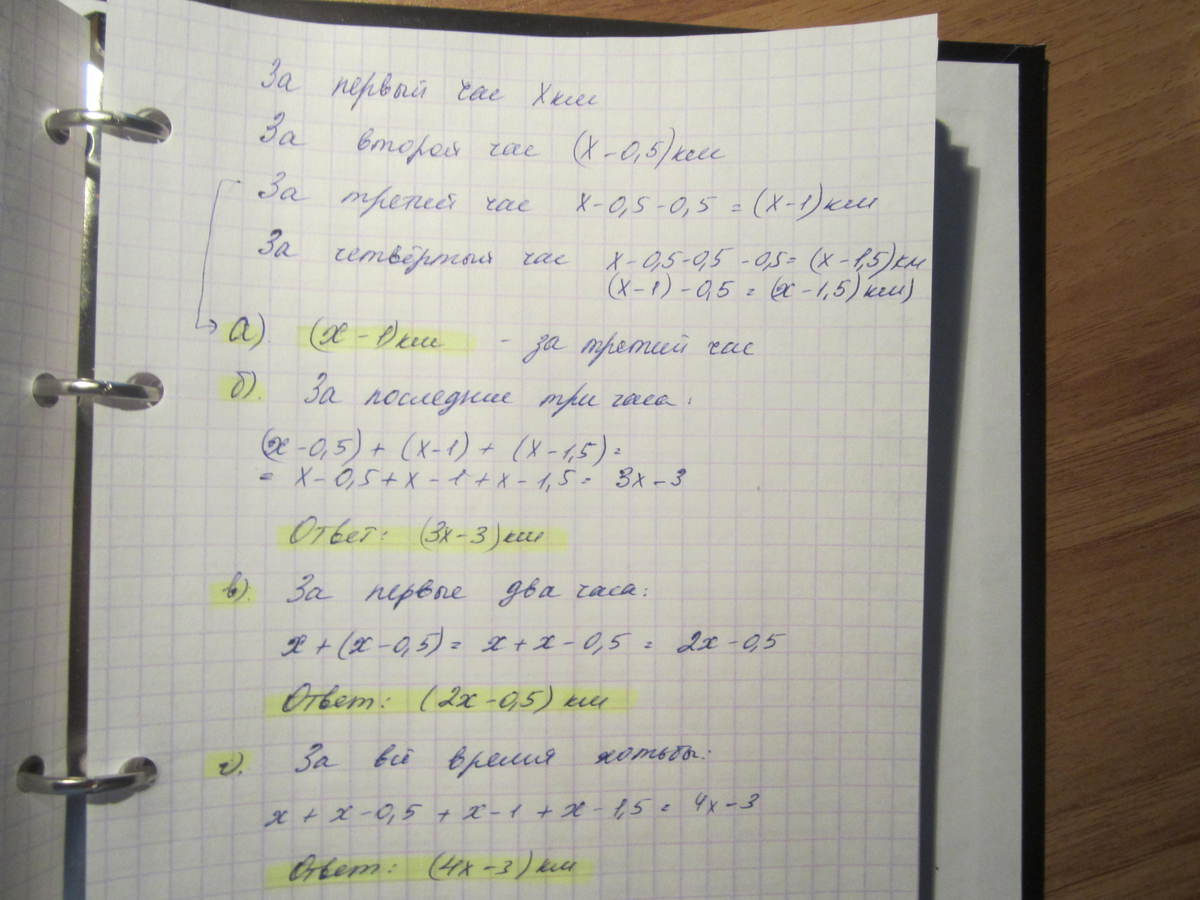 За первый час х км
За второй час (х-0,5) км
За третий час х-0,5-0,5 = (х-1) км
За четвёртый час х-0,5-0,5-0,5= (х-1,5) км
(х-1)-0,5 = (х-1,5) км)
а) (х-1) км - за третий час
б). За последние три часа:
(х-0,5) + (х-1) + (х-1,5) =
= х-0,5+х-1+х-1,5= 3х-3
Ответ: (3х-3) км
в). За первые два часа:
х+(х-0,5)= х+х-0,5 = 2х-0,5
Ответ: (2х-0,5) км
г). За всё время хотьбы:
х+х-0,5+х-1+х-1,5= 4х-3
Ответ: (4х-3) км